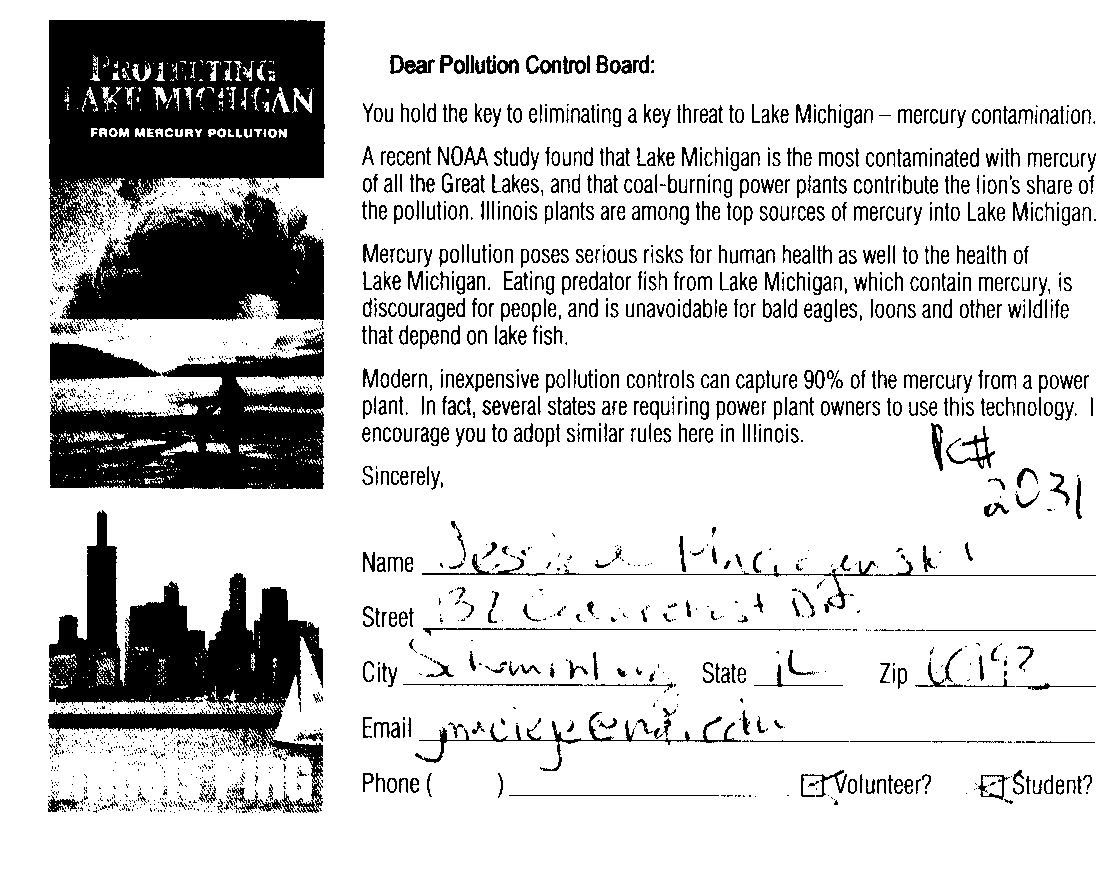 PROTECTING
LAKE MICHIGAN
FROM MERCURY POLLUTION
ILLINOIS PIRG
Dear Pollution Control Board:
You hold the key to eliminating a key threat to Lake Michigan – mercury contamination.
A recent NOAA study found that Lake Michigan is the most contaminated with mercury
of all the Great Lakes, and that coal-burning power plants contribute the lion's share of
the pollution. Illinois plants are among the top sources of mercury into Lake Michigan.
Mercury pollution poses serious risks for human health as well to the health of
Lake Michigan. Eating predator fish from Lake Michigan, which contain mercury, is
discouraged for people, and is unavoidable for bald eagles, loons and other wildlife
that depend on lake fish.
Modern, inexpensive pollution controls can capture 90% of the mercury from a power
plant. In fact, several states are requiring power plant owners to use this technology. I
encourage you to adopt similar rules here in Illinois.
PC#
2031
Sincerely,
Name Jessica
Street 132
City State IL Zip
Email
Phone ( ) Volunteer? Student?